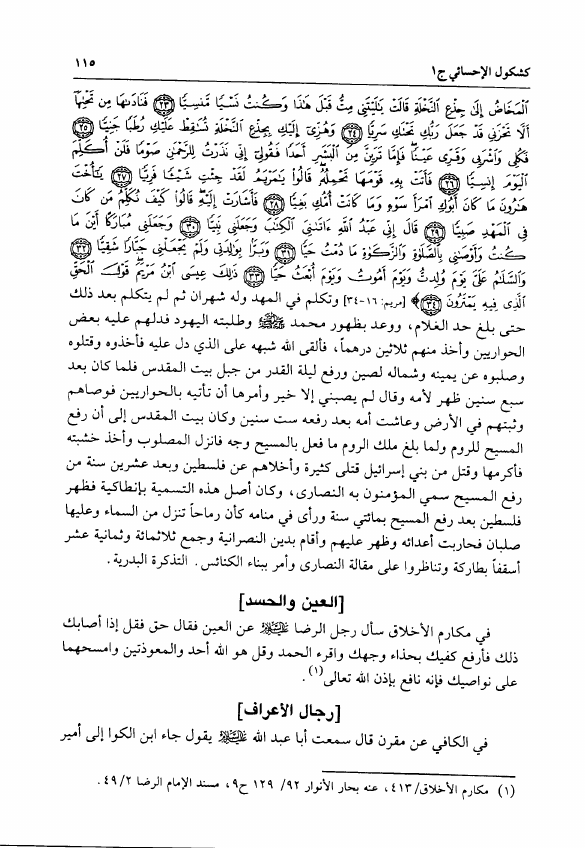 كشكول الإحسائي ج١
١١٥
ٱلْمَخَاضُ إِلَىٰ جِذْعِ ٱلنَّخْلَةِ قَالَتْ يَٰلَيْتَنِى مِتُّ قَبْلَ هَٰذَا وَكُنتُ نَسْيًا مَّنسِيًّا ﴿٢٣﴾ فَنَادَىٰهَا مِن تَحْتِهَآ
أَلَّا تَحْزَنِى قَدْ جَعَلَ رَبُّكِ تَحْتَكِ سَرِيًّا ﴿٢٤﴾ وَهُزِّىٓ إِلَيْكِ بِجِذْعِ ٱلنَّخْلَةِ تُسَٰقِطْ عَلَيْكِ رُطَبًا جَنِيًّا ﴿٢٥﴾
فَكُلِى وَٱشْرَبِى وَقَرِّى عَيْنًا فَإِمَّا تَرَيِنَّ مِنَ ٱلْبَشَرِ أَحَدًا فَقُولِىٓ إِنِّى نَذَرْتُ لِلرَّحْمَٰنِ صَوْمًا فَلَنْ أُكَلِّمَ
ٱلْيَوْمَ إِنسِيًّا ﴿٢٦﴾ فَأَتَتْ بِهِۦ قَوْمَهَا تَحْمِلُهُۥ قَالُوا۟ يَٰمَرْيَمُ لَقَدْ جِئْتِ شَيْـًٔا فَرِيًّا ﴿٢٧﴾ يَٰٓأُخْتَ
هَٰرُونَ مَا كَانَ أَبُوكِ ٱمْرَأَ سَوْءٍ وَمَا كَانَتْ أُمُّكِ بَغِيًّا ﴿٢٨﴾ فَأَشَارَتْ إِلَيْهِ قَالُوا۟ كَيْفَ نُكَلِّمُ مَن كَانَ
فِى ٱلْمَهْدِ صَبِيًّا ﴿٢٩﴾ قَالَ إِنِّى عَبْدُ ٱللَّهِ ءَاتَىٰنِىَ ٱلْكِتَٰبَ وَجَعَلَنِى نَبِيًّا ﴿٣٠﴾ وَجَعَلَنِى مُبَارَكًا أَيْنَ مَا
كُنتُ وَأَوْصَٰنِى بِٱلصَّلَوٰةِ وَٱلزَّكَوٰةِ مَا دُمْتُ حَيًّا ﴿٣١﴾ وَبَرًّۢا بِوَٰلِدَتِى وَلَمْ يَجْعَلْنِى جَبَّارًا شَقِيًّا ﴿٣٢﴾
وَٱلسَّلَٰمُ عَلَىَّ يَوْمَ وُلِدتُّ وَيَوْمَ أَمُوتُ وَيَوْمَ أُبْعَثُ حَيًّا ﴿٣٣﴾ ذَٰلِكَ عِيسَى ٱبْنُ مَرْيَمَ قَوْلَ ٱلْحَقِّ
ٱلَّذِى فِيهِ يَمْتَرُونَ ﴿٣٤﴾﴾ [مريم: ١٦-٣٤] وتكلم في المهد وله شهران ثم لم يتكلم بعد ذلك
حتى بلغ حد الغلام، ووعد بظهور محمد ﷺ وطلبته اليهود فدلهم عليه بعض
الحواريين وأخذ منهم ثلاثين درهماً، فألقى الله شبهه على الذي دل عليه فأخذوه وقتلوه
وصلبوه عن يمينه وشماله لصين ورفع ليلة القدر من جبل بيت المقدس فلما كان بعد
سبع سنين ظهر لأمه وقال لم يصبني إلا خير وأمرها أن تأتيه بالحواريين فوصاهم
وثبتهم في الأرض وعاشت أمه بعد رفعه ست سنين وكان بيت المقدس إلى أن رفع
المسيح للروم ولما بلغ ملك الروم ما فعل بالمسيح وجه فانزل المصلوب وأخذ خشبته
فأكرمها وقتل من بني إسرائيل قتلى كثيرة وأخلاهم عن فلسطين وبعد عشرين سنة من
رفع المسيح سمي المؤمنون به النصارى، وكان أصل هذه التسمية بإنطاكية فظهر
فلسطين بعد رفع المسيح بمائتي سنة ورأى في منامه كأن رماحاً تنزل من السماء وعليها
صلبان فحاربت أعدائه وظهر عليهم وأقام بدين النصرانية وجمع ثلاثمائة وثمانية عشر
أسقفاً بطاركة وتناظروا على مقالة النصارى وأمر ببناء الكنائس. التذكرة البدرية.
[العين والحسد]
في مكارم الأخلاق سأل رجل الرضا عليه السلام عن العين فقال حق فقل إذا أصابك
ذلك فأرفع كفيك بحذاء وجهك واقرء الحمد وقل هو الله أحد والمعوذتين وامسحهما
على نواصيك فإنه نافع بإذن الله تعالى(١).
[رجال الأعراف]
في الكافي عن مقرن قال سمعت أبا عبد الله عليه السلام يقول جاء ابن الكوا إلى أمير
(١) مكارم الأخلاق/٤١٣، عنه بحار الأنوار ٩٢/ ١٢٩ ح٩، مسند الإمام الرضا ٤٩/٢.